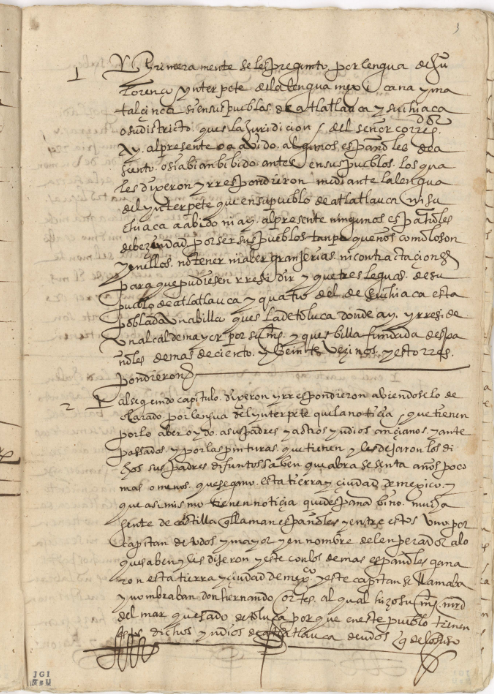 1
1 Primeramente se les pregunto por lengua de Ju
Lorenço ynterpete de la lengua mexicana y ma
talçinca si en sus pueblos de atlatlauca y suchiaca
o su districto ques la juridicion del señor corregor
Ay al presente o a abido algunos españoles de a
siento o si abian bibido antes en sus pueblos los qua
les dixeron y rrespondieron mediante la lengua
del ynterpete que en su pueblo de atlatlauca ni su
chiaca a abido ni ay al presente ningunos españoles
de bezindad por ser sus pueblos tan pequeños como lo son
y nillos no tener ni aber granjerias ni contrataçiones
para que pudiesen rresedir y que tres leguas de su
pueblo de atlatlauca y quatro del de suchiaca esta
poblada una billa ques la de toluca donde ay y rresi de
un alcalde mayor por su mg. y ques billa fundada despa
ñoles de mas de ciento y beinte vezinos y esto rres
pondieron
2 Al segundo capitulo dixeron y rrespondieron abiendoselo de
clarado por lengua del ynterpete que la notiçia que tienen
por lo aber oydo a sus padres y a otros yndios ançianos y ante
pasados y por las pinturas que tienen y les dejaron los di
chos sus padres difuntos saben que abra sesenta años poco
mas o menos que se gano esta tierra y ciudad de mexico y
que asi mismo tienen notiçia que despaña bino mucha
gente de castilla q llaman españoles y entre estos uno por
capitan de todos y mayor y en nombre del enperador a lo
que saben y les dixeron y este con los demas españoles gana
ron esta tierra y ciudad de mexco y este capitan se llamaba
y nombraban don hernando cortes al qual hizo su mg. mrd
del marquesado de toluca por que en este pueblo tienen
los dichos yndios de atlatlauca deudos